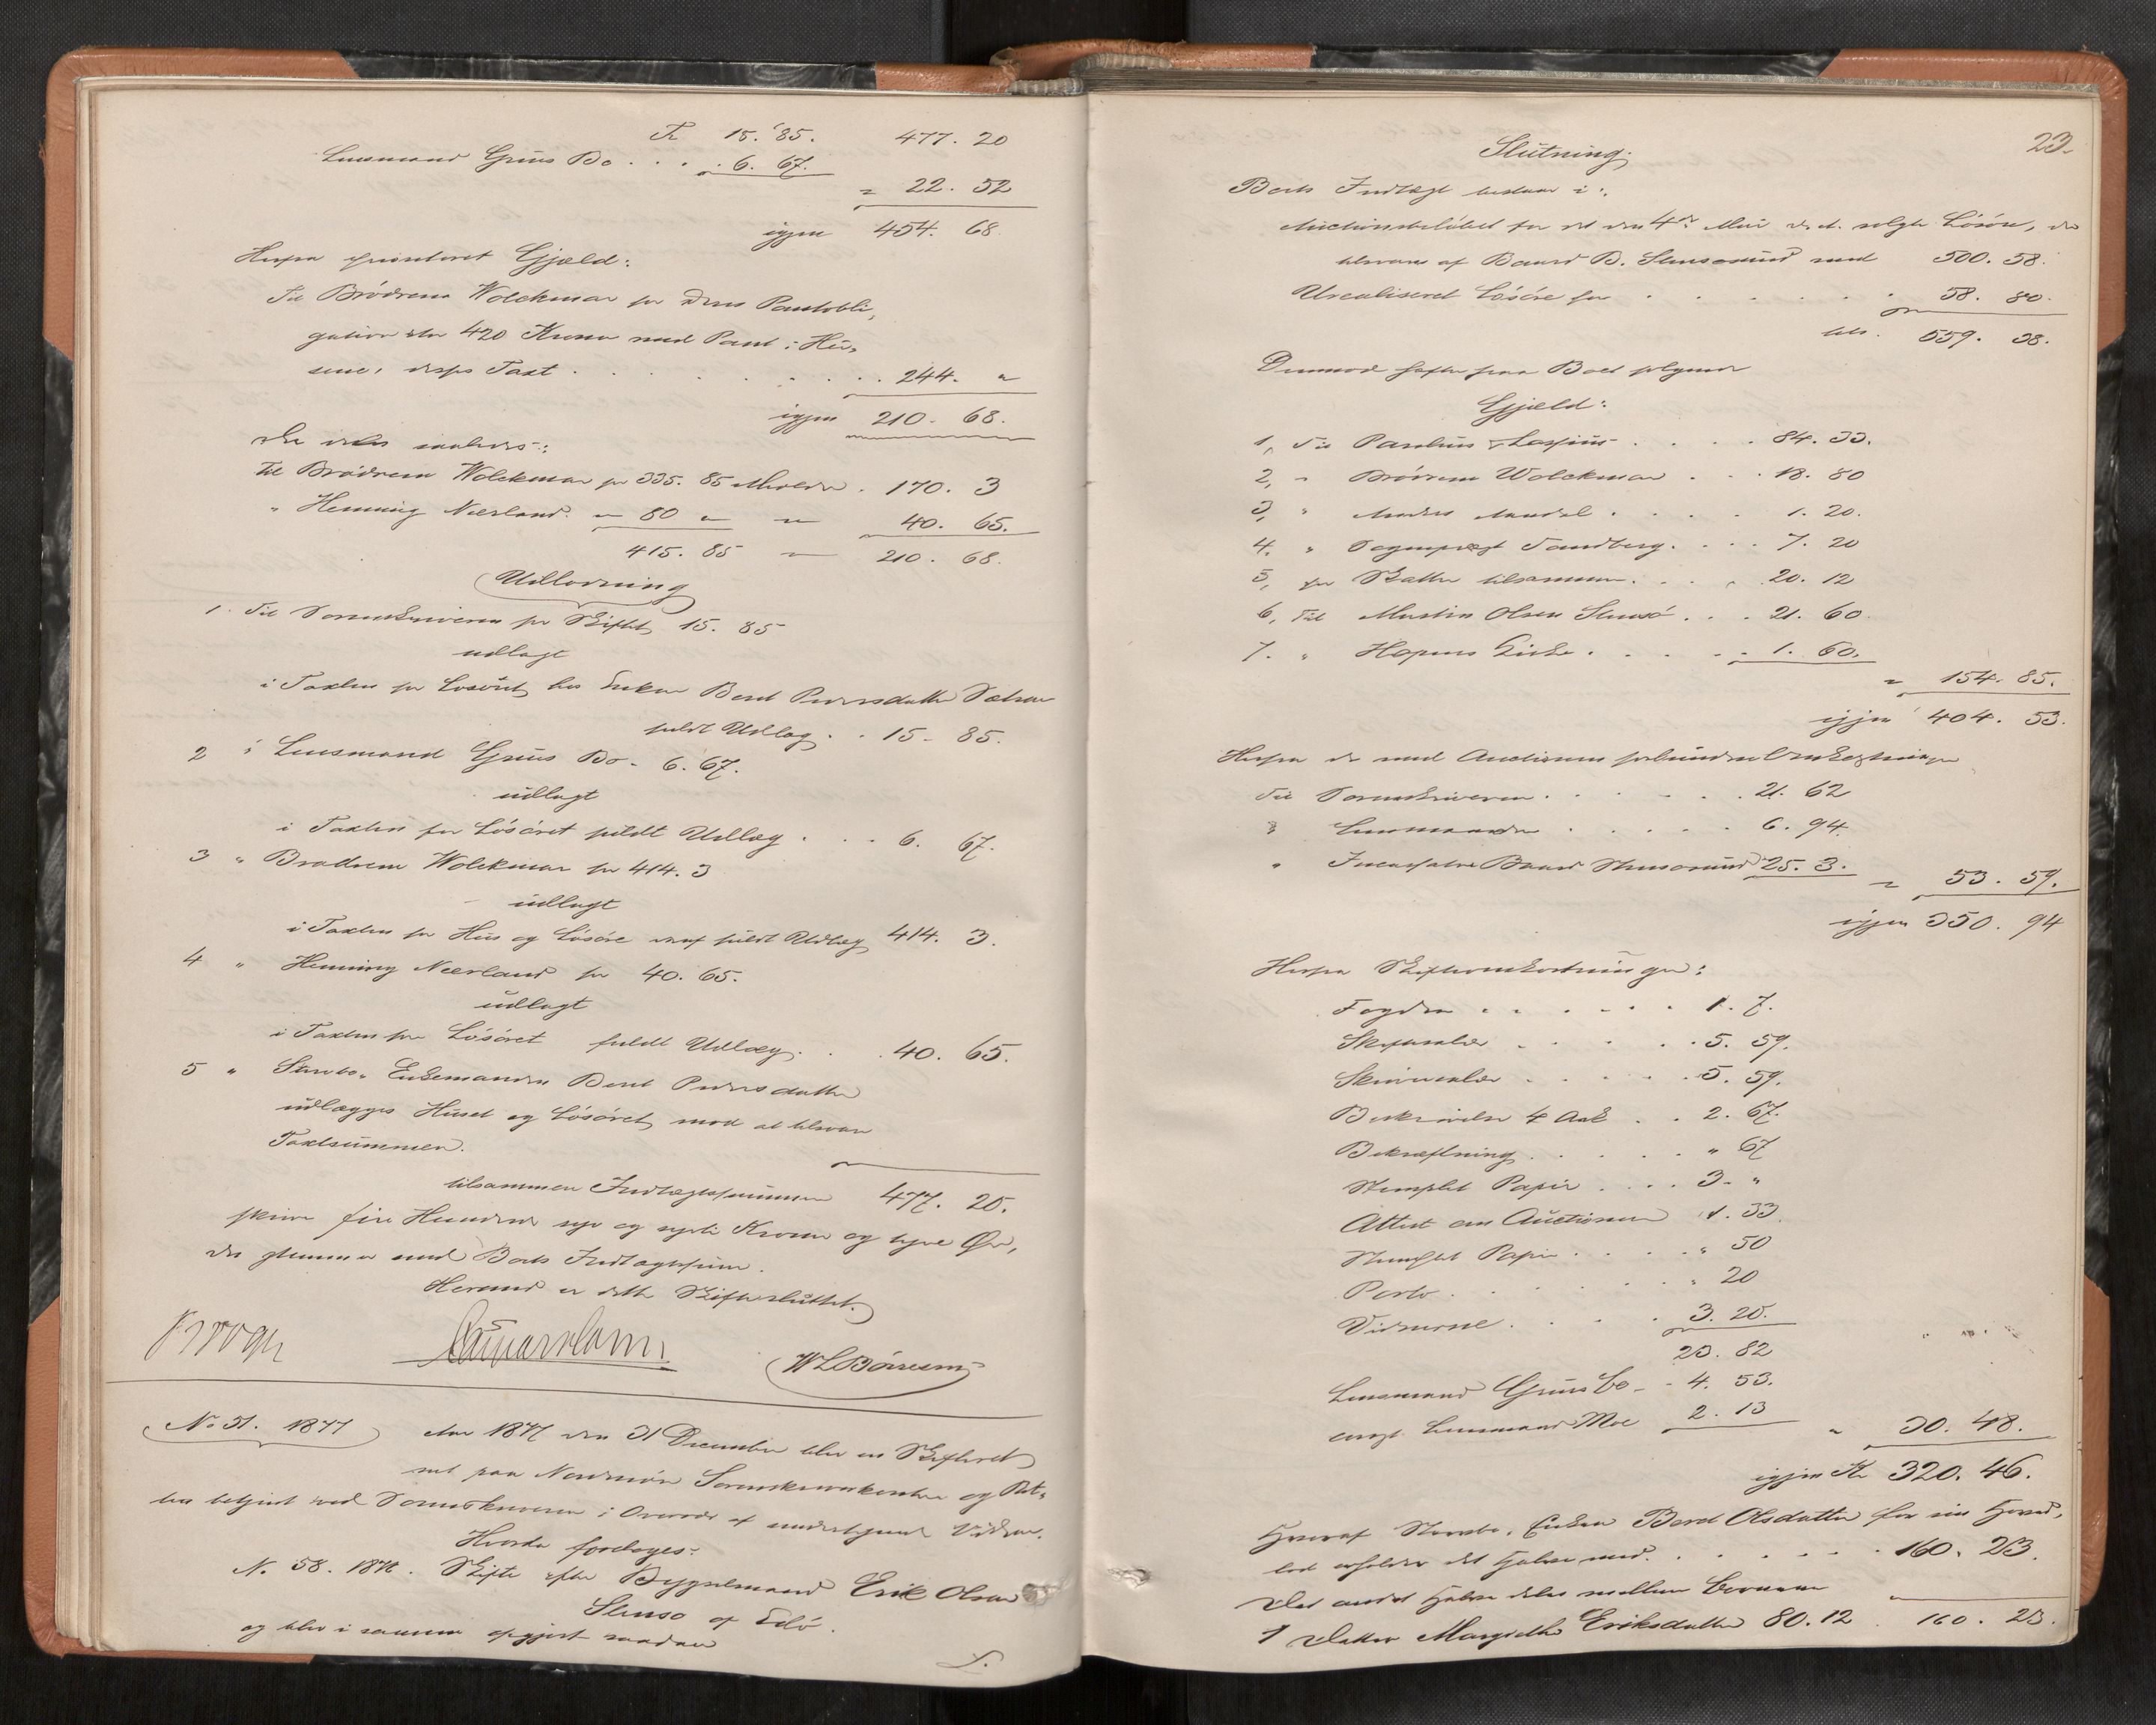 Kr 15. 85. 477. 20
Lensmand Grüns Bo . . . 6. 67.
" 22. 52
igjen 454. 68
Herfra prioriteret Gjæld:
Til Brödrene Wolckmar for deres Pantobli,
gation stor 420 Kroner med Pant i Hu-
sene, disses Taxt . . . 244. "
igjen 210. 68.
der deles saaledes:
Til Brödrene Wolckmar for 335. 85 Tilkommende . 170. 3
" Henning Nærland " 80 " " 40. 65.
415. 85 " 210. 68.
Udlodning
1. Til Sorenskriveren for Skiftet 15. 85
udlagt
i Taxten for Løsöret hos Enken Beret Pedersdatter
fuldt Udlæg . . 15 - 85.
2 " Lensmand Grüns Bo - 6. 67.
udlagt
i Taxten for Løsöret fuldt Udlæg . . . 6. 67.
3 " Brødrene Wolckmar for 414. 3
udlagt
i Taxten for Hus og Løsöre fuldt Udlæg 414. 3.
4 " Henning Nærland for 40. 65.
udlagt
i Taxten for Løsöret fuldt Udlæg . . 40. 65.
5 " Stervbo- Enkemanden Beret Pedersdatter
udlægges Huset og Løsöret mod at tilsvare
Taxtsummen.
tilsammen Indtægtssummen 477. 20.
skriver fire Hundrede syv og sytti Kroner og tyve Øre,
der stemmer med Boets Indtægtssum.
Hermed er dette Skifte sluttet.
Krogh
W L Börresen
No 31. 1877 Aar 1877 den 31 December blev en Skifteret
sat paa Nordmøre Sorenskriverkontor og Ret-
ten betjent ved Sorenskriveren i Overvær af undertegnede Vidner.
Hvorda foretoges:
N. 58. 1876. Skifte efter Bygselmand Erik Olsen
Stensø af Edö.
og blev i samme opgjort saadan
S.
23.
Slutning:
Boets Indtægt bestaar i:
Auctionsbeløbet for det den 4de Mai d. A. solgte Løsöre, der
tilsvares af Baard B. Stensesund med 500. 58.
Urealiseret Løsöre for . . . 58. 80.
tils. 559. 38.
Derimod hefter paa Boet følgende
Gjæld:
1, Til Parelius & Lossius . . . . 84. 33.
2, " Brödrene Wolckmar . . . 18. 80
3, " Anders Mandal . . . . 1. 20.
4. " Sogneprest Sandberg . . . 7. 20
5, for Skatter tilsammen . . . 20. 12
6, Til Martin Olsen Stensö . . . 21. 60.
7. " Hopens Kirke . . . . 1. 60.
" 154. 85.
igjen 404. 53.
Herfra de med Auctionen forbundne Omkostninger
Til Sorenskriveren . . . 21. 62
" Lensmanden . . . 6. 94.
" Incassator Baard Stensesund 25. 3.
" 53. 59.
igjen 350. 94
Herfra Skifteomkostninger:
Fogden . . . . 1. 7.
Skiftesalær . . . . 5. 59.
Skriversalær . . . . 5. 59.
Beskrivelse 4 Ark . . 2. 67.
Bekræftning . . . . " 67
Stemplet Papir . . . . 3. "
Attest om Auctionen 1. 33.
Stemplet Papir . . . . " 50
Porto . . . . " 20
Vidnerne . . . . 3. 20.
23. 82
Lensmand Grüns bo - - 4. 53.
const. Lensmand Moe 2. 13
" 30. 48.
igjen Kr 320. 46.
Hvoraf Stervbo- Enken Beret Olsdatter for sin Hoved,
lod erholder det Halve med . . . . 160. 23.
Det andet Halve deles mellem børnene
1 Datter Margrethe Eriksdatter 80. 12 . 160. 23.